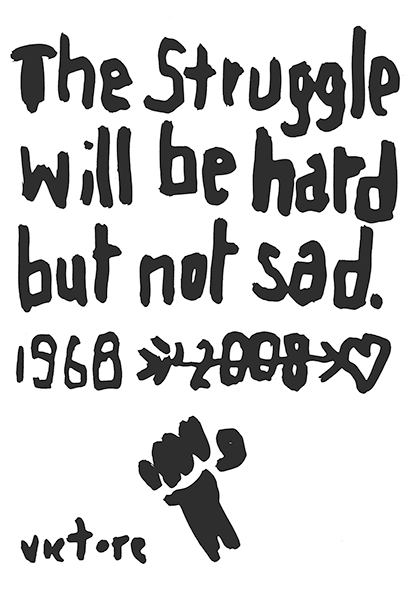 The Struggle
will be hard
but not sad.
1968 2008
victore